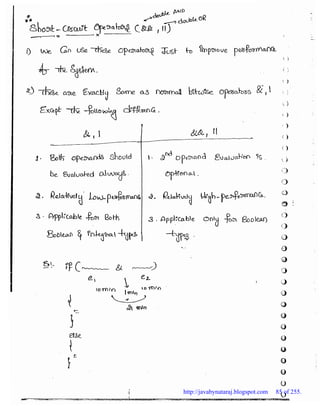 double AND
double OR
Short-Circuit Operators (&&, ||)
1) We Can Use These Operators Just to Improve performance
of the System.
2) These are Exactly Same as normal bitwise operators &, |
Except the following difference.
&, | &&, ||
1. Both operands Should be Evaluated Always.
1. 2nd operand Evaluation is optional.
2. Relatively Low-performance
2. Relatively High-performance.
3. Applicable for Both Boolean & Integral types
3. Applicable only for Boolean types.
Ex:- if (—— & ——)
e1 e2
10 min 1 min 10 min
21 min
{
}
else
{
}
http://javabynataraj.blogspot.com 85 of 255.